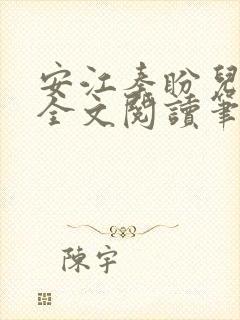 安江秦盼兒
全文閱讀筆
陳宇